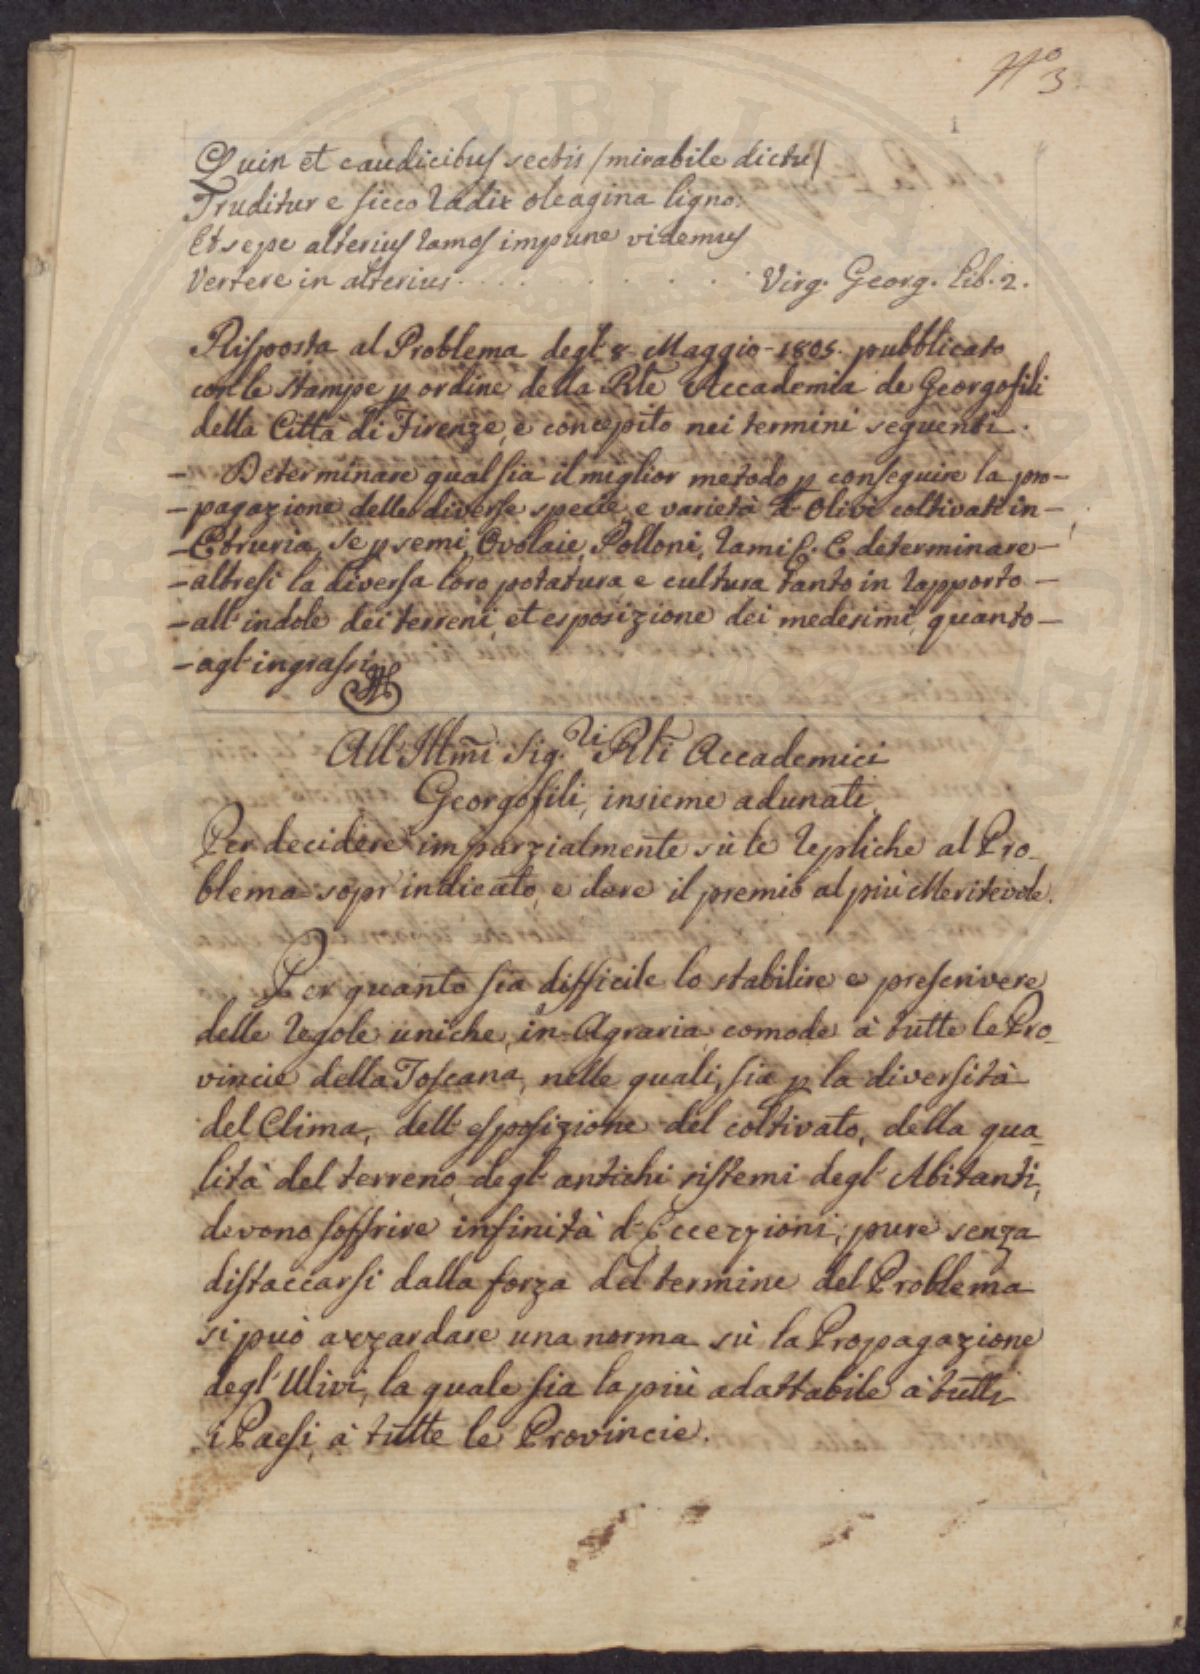 N.° 3
1
Quin et caudicibus sectis (mirabile dictu)
Truditur e sicco radix oleagina ligno;
Et sepe alterius ramos impune videmus
Vertere in alterius . . . . . . . . Virg. Georg. Lib. 2.
Risposta al Problema degl' 8 Maggio 1805. pubblicato
con le stampe p ordine della Rle Accademia de Georgofili
della Città di Firenze, e concepito nei termini seguenti.
– Determinare qual sia il miglior metodo p conseguire la pro–
– pagazione delle diverse specie, e varietà d' Olivi coltivati in–
– Etruria, se p semi, Ovolaie, Polloni, rami &. E determinare–
– altresi la diversa loro potatura e cultura tanto in rapporto –
– all' indole dei terreni, et esposizione dei medesimi, quanto –
– agl' ingrassi
All' Illmi Sig.ri Rli Accademici
Georgofili, insieme adunati
Per decidere imparzialmente sù le repliche al Pro-
blema sopr' indicato, e dare il premio al più Meritevole.
Per quanto sia difficile lo stabilire e prescrivere
delle regole uniche, in Agraria comode à tutte le Pro-
vincie della Toscana, nelle quali, sia p la diversità
del Clima, dell' esposizione del coltivato, della qua-
lità del terreno, degl' antichi sistemi degl' Abitanti,
devono soffrire infinità d' Eccezzioni; pure senza
distaccarsi dalla forza del termine del Problema
si può azzardare una norma sù la Propagazione
degl' Ulivi, la quale sia la più adattabile à tutti
i Paesi, à tutte le Provincie.